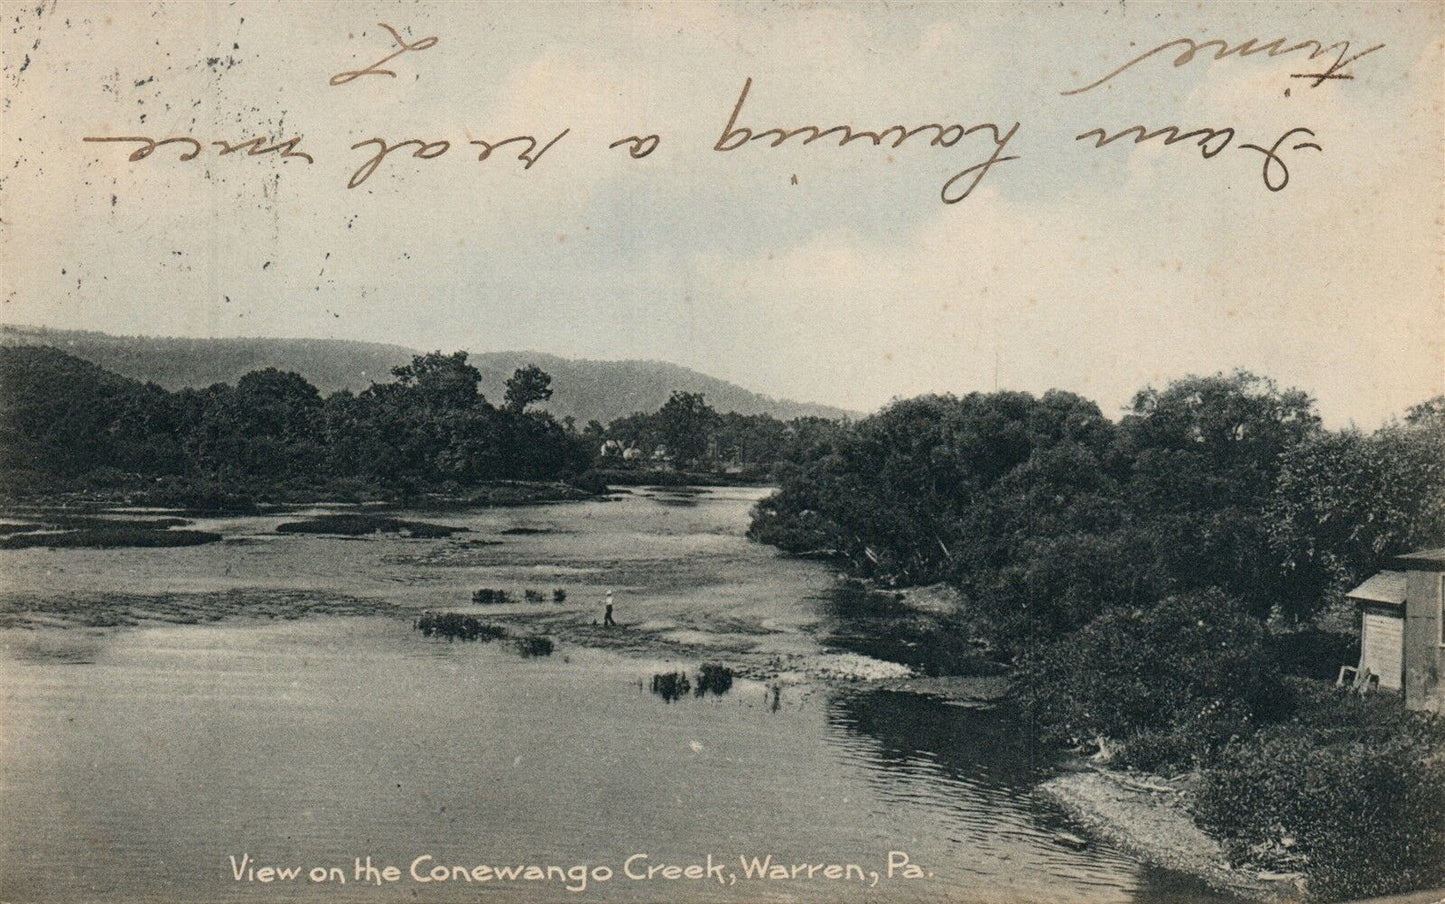 I am having a real nice
time. L.
View on the Conewango Creek, Warren, Pa.